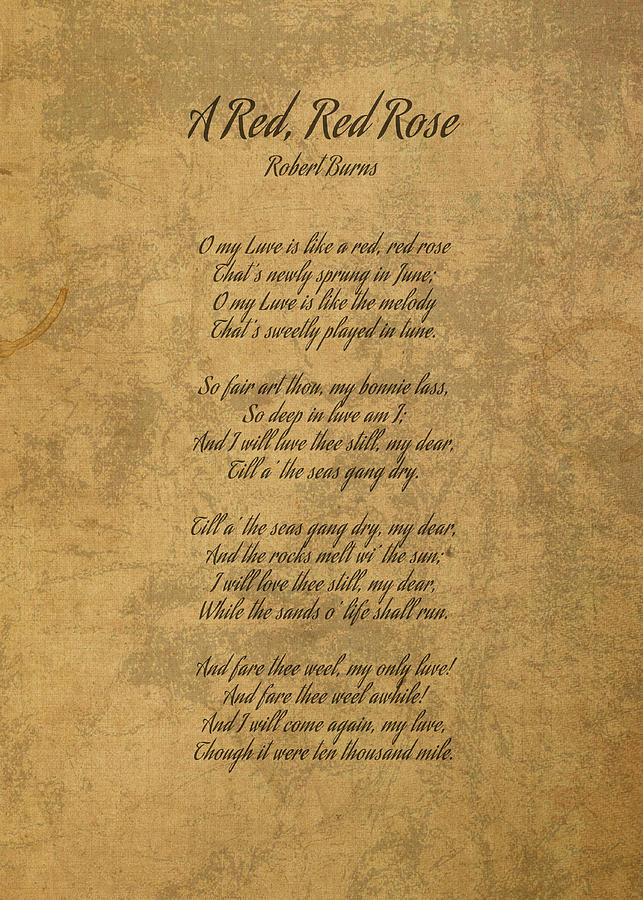 A Red, Red Rose
Robert Burns
O my Luve is like a red, red rose
That's newly sprung in June;
O my Luve is like the melody
That's sweetly played in tune.
So fair art thou, my bonnie lass,
So deep in luve am I;
And I will luve thee still, my dear,
Till a' the seas gang dry.
Till a' the seas gang dry, my dear,
And the rocks melt wi' the sun;
I will love thee still, my dear,
While the sands o' life shall run.
And fare thee weel, my only luve!
And fare thee weel awhile!
And I will come again, my luve,
Though it were ten thousand mile.